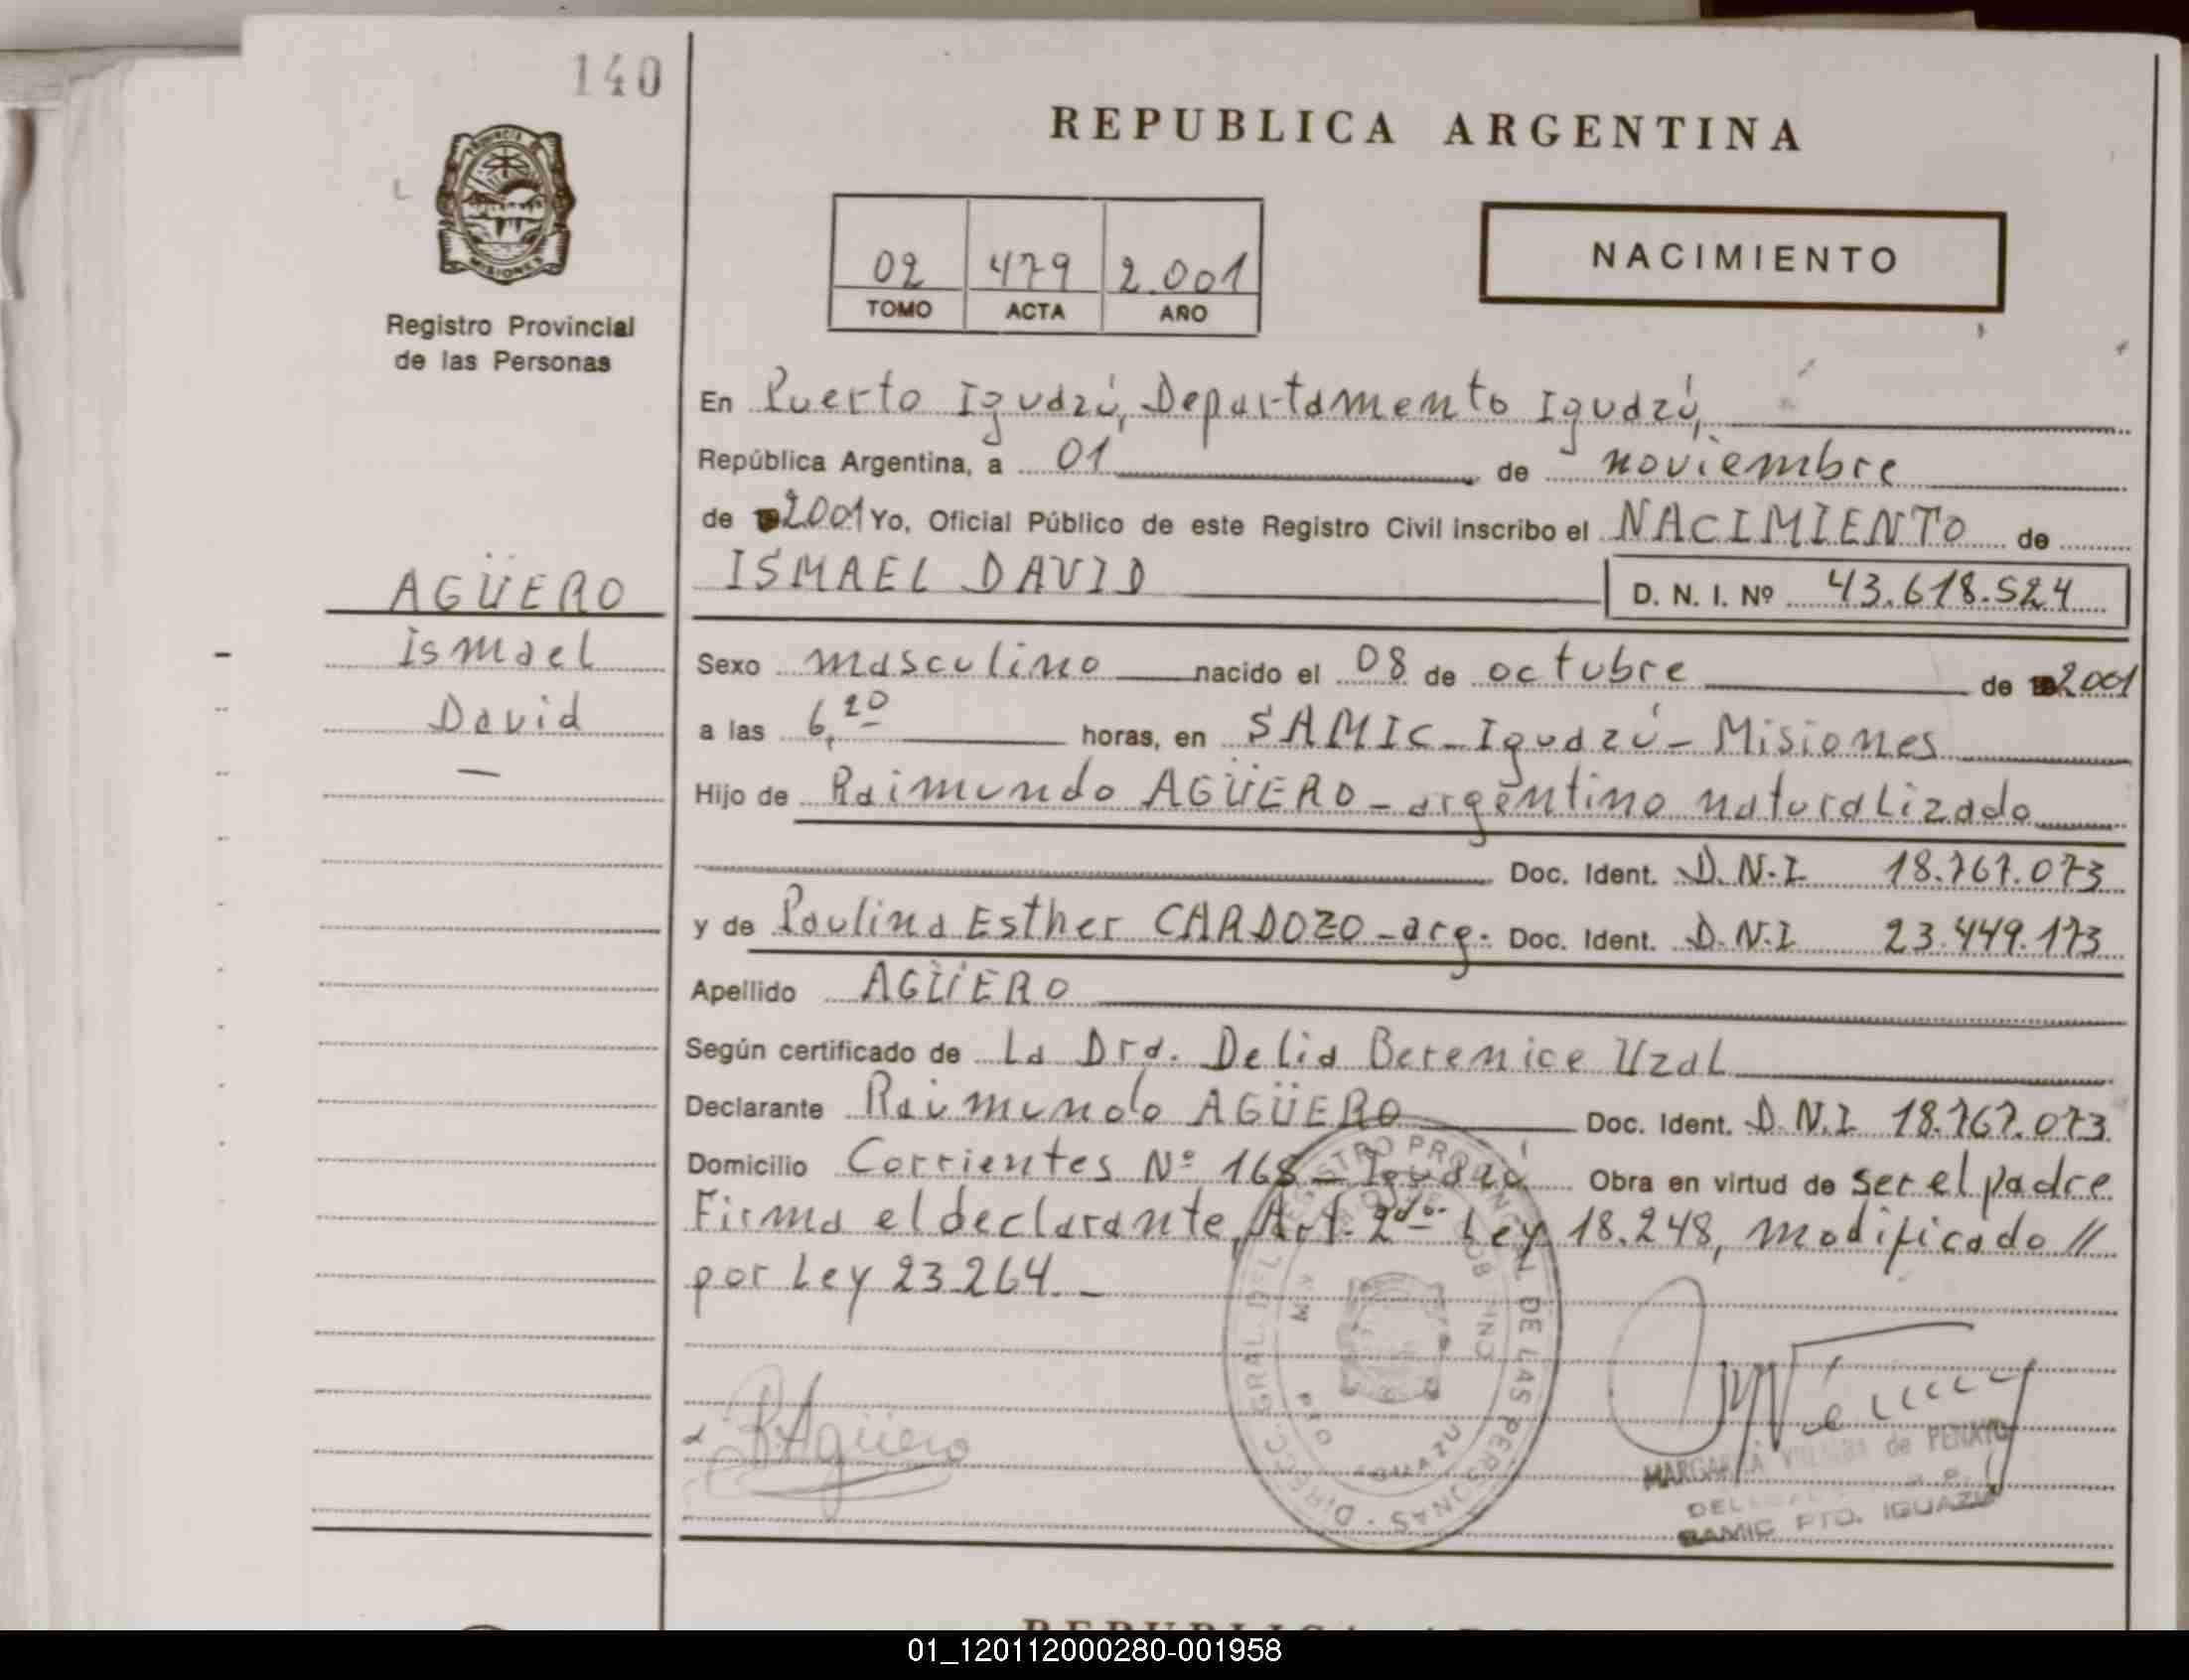 140
REPUBLICA ARGENTINA
PROVINCIA DE
MISIONES
Registro Provincial
de las Personas
02 479 2.001
TOMO ACTA AÑO
NACIMIENTO
En Puerto Iguazú, Departamento Iguazú,
República Argentina, a 01 de noviembre
de 2001 Yo, Oficial Público de este Registro Civil inscribo el NACIMIENTO de
ISMAEL DAVID D. N. I. Nº 43.618.524
AGÜERO
Ismael
David
Sexo masculino nacido el 08 de octubre de 2001
a las 6,20 horas, en SAMIC - Iguazú - Misiones
Hijo de Raimundo AGÜERO - argentino naturalizado
Doc. Ident. D.N.I 18.767.073
y de Paulina Esther CARDOZO - arg. Doc. Ident. D.N.I 23.449.173
Apellido AGÜERO
Según certificado de La Dra. Delia Berenice Uzal
Declarante Raimundo AGÜERO Doc. Ident. D.N.I 18.767.073
Domicilio Corrientes Nº 168 - Iguazú Obra en virtud de ser el padre
Firma el declarante, Art. 2do. Ley 18.248, modificado //
por Ley 23.264. -
DIRECC. GRAL. DEL REGISTRO PROVINCIAL DE LAS PERSONAS
IGUAZU
RAgüero
MARGARITA de PENAYO
SAMIC PTO. IGUAZU
01_120112000280-001958